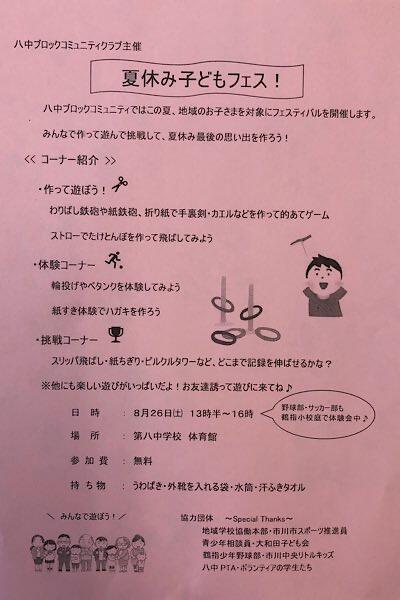 八中ブロックコミュニティクラブ主催
夏休み子どもフェス！
八中ブロックコミュニティではこの夏、地域のお子さまを対象にフェスティバルを開催します。
みんなで作って遊んで挑戦して、夏休み最後の思い出を作ろう！
<< コーナー紹介 >>
・作って遊ぼう！
わりばし鉄砲や紙鉄砲、折り紙で手裏剣・カエルなどを作って的あてゲーム
ストローでたけとんぼを作って飛ばしてみよう
・体験コーナー
輪投げやペタンクを体験してみよう
紙すき体験でハガキを作ろう
・挑戦コーナー
スリッパ飛ばし・紙ちぎり・ピルクルタワーなど、どこまで記録を伸ばせるかな？
※他にも楽しい遊びがいっぱいだよ！お友達誘って遊びに来てね♪
日 時 ： 8月26日(土) 13時半～16時
野球部・サッカー部も
鶴指小校庭で体験会中♪
場 所 ： 第八中学校 体育館
参 加 費 ： 無料
持 ち 物 ： うわばき・外靴を入れる袋・水筒・汗ふきタオル
＼ みんなで遊ぼう！ ／
協力団体 ～Special Thanks～
地域学校協働本部・市川市スポーツ推進員
青少年相談員・大和田子ども会
鶴指少年野球部・市川中央リトルキッズ
八中PTA・ボランティアの学生たち